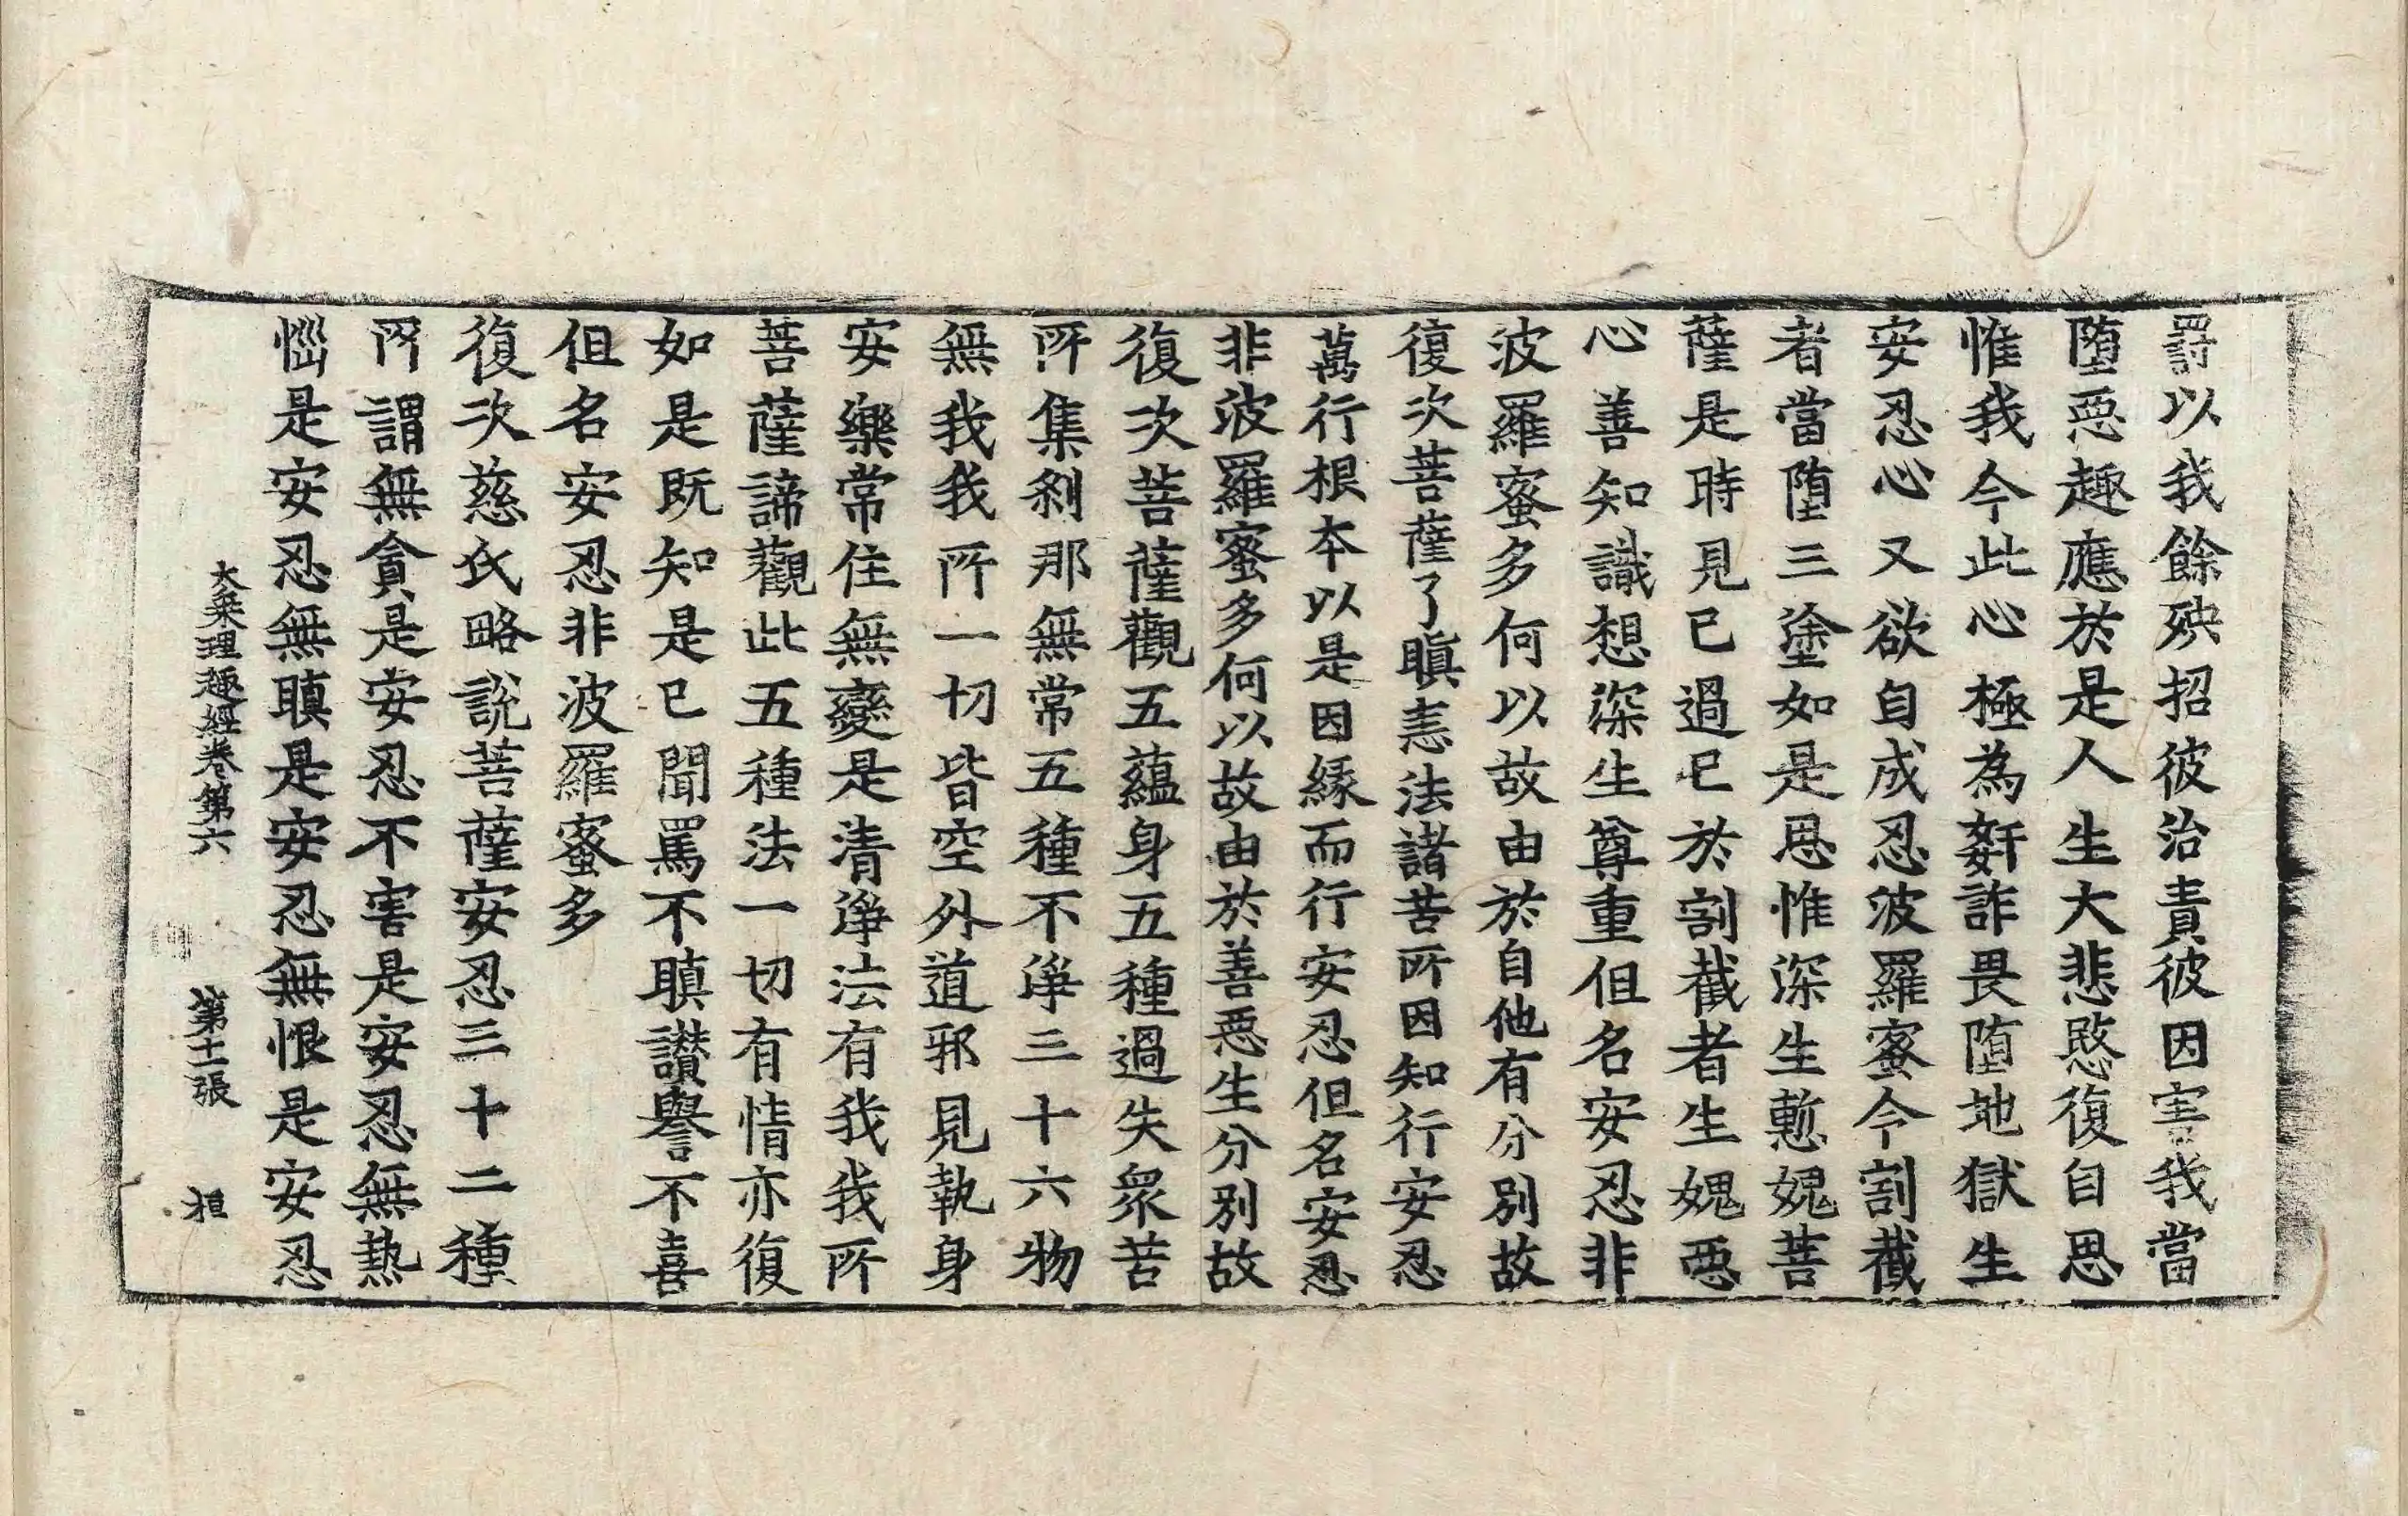 罸以我餘殃招彼治責彼因害我當
堕惡趣應於是人生大悲愍復自思
惟我今此心極為姧詐畏堕地獄生
安忍心又欲自成忍波羅蜜今割截
者當堕三塗如是思惟深生慙媿菩
薩是時見已過已於割截者生媿惡
心善知識想深生尊重但名安忍非
波羅蜜多何以故由於自他有分別故
復次菩薩了瞋恚法諸苦所因知行安忍
萬行根本以是因緣而行安忍但名安忍
非波羅蜜多何以故由於善惡生分別故
復次菩薩觀五蘊身五種過失眾苦
所集剎那無常五種不淨三十六物
無我我所一切皆空外道邪見執身
安樂常住無變是清淨法有我我所
菩薩諦觀此五種法一切有情亦復
如是既知是已聞罵不瞋讃譽不喜
但名安忍非波羅蜜多
復次慈氏略說菩薩安忍三十二種
所謂無貪是安忍不害是安忍無熱
惱是安忍無瞋是安忍無恨是安忍
大乗理趣經卷第六 第十二張 桓